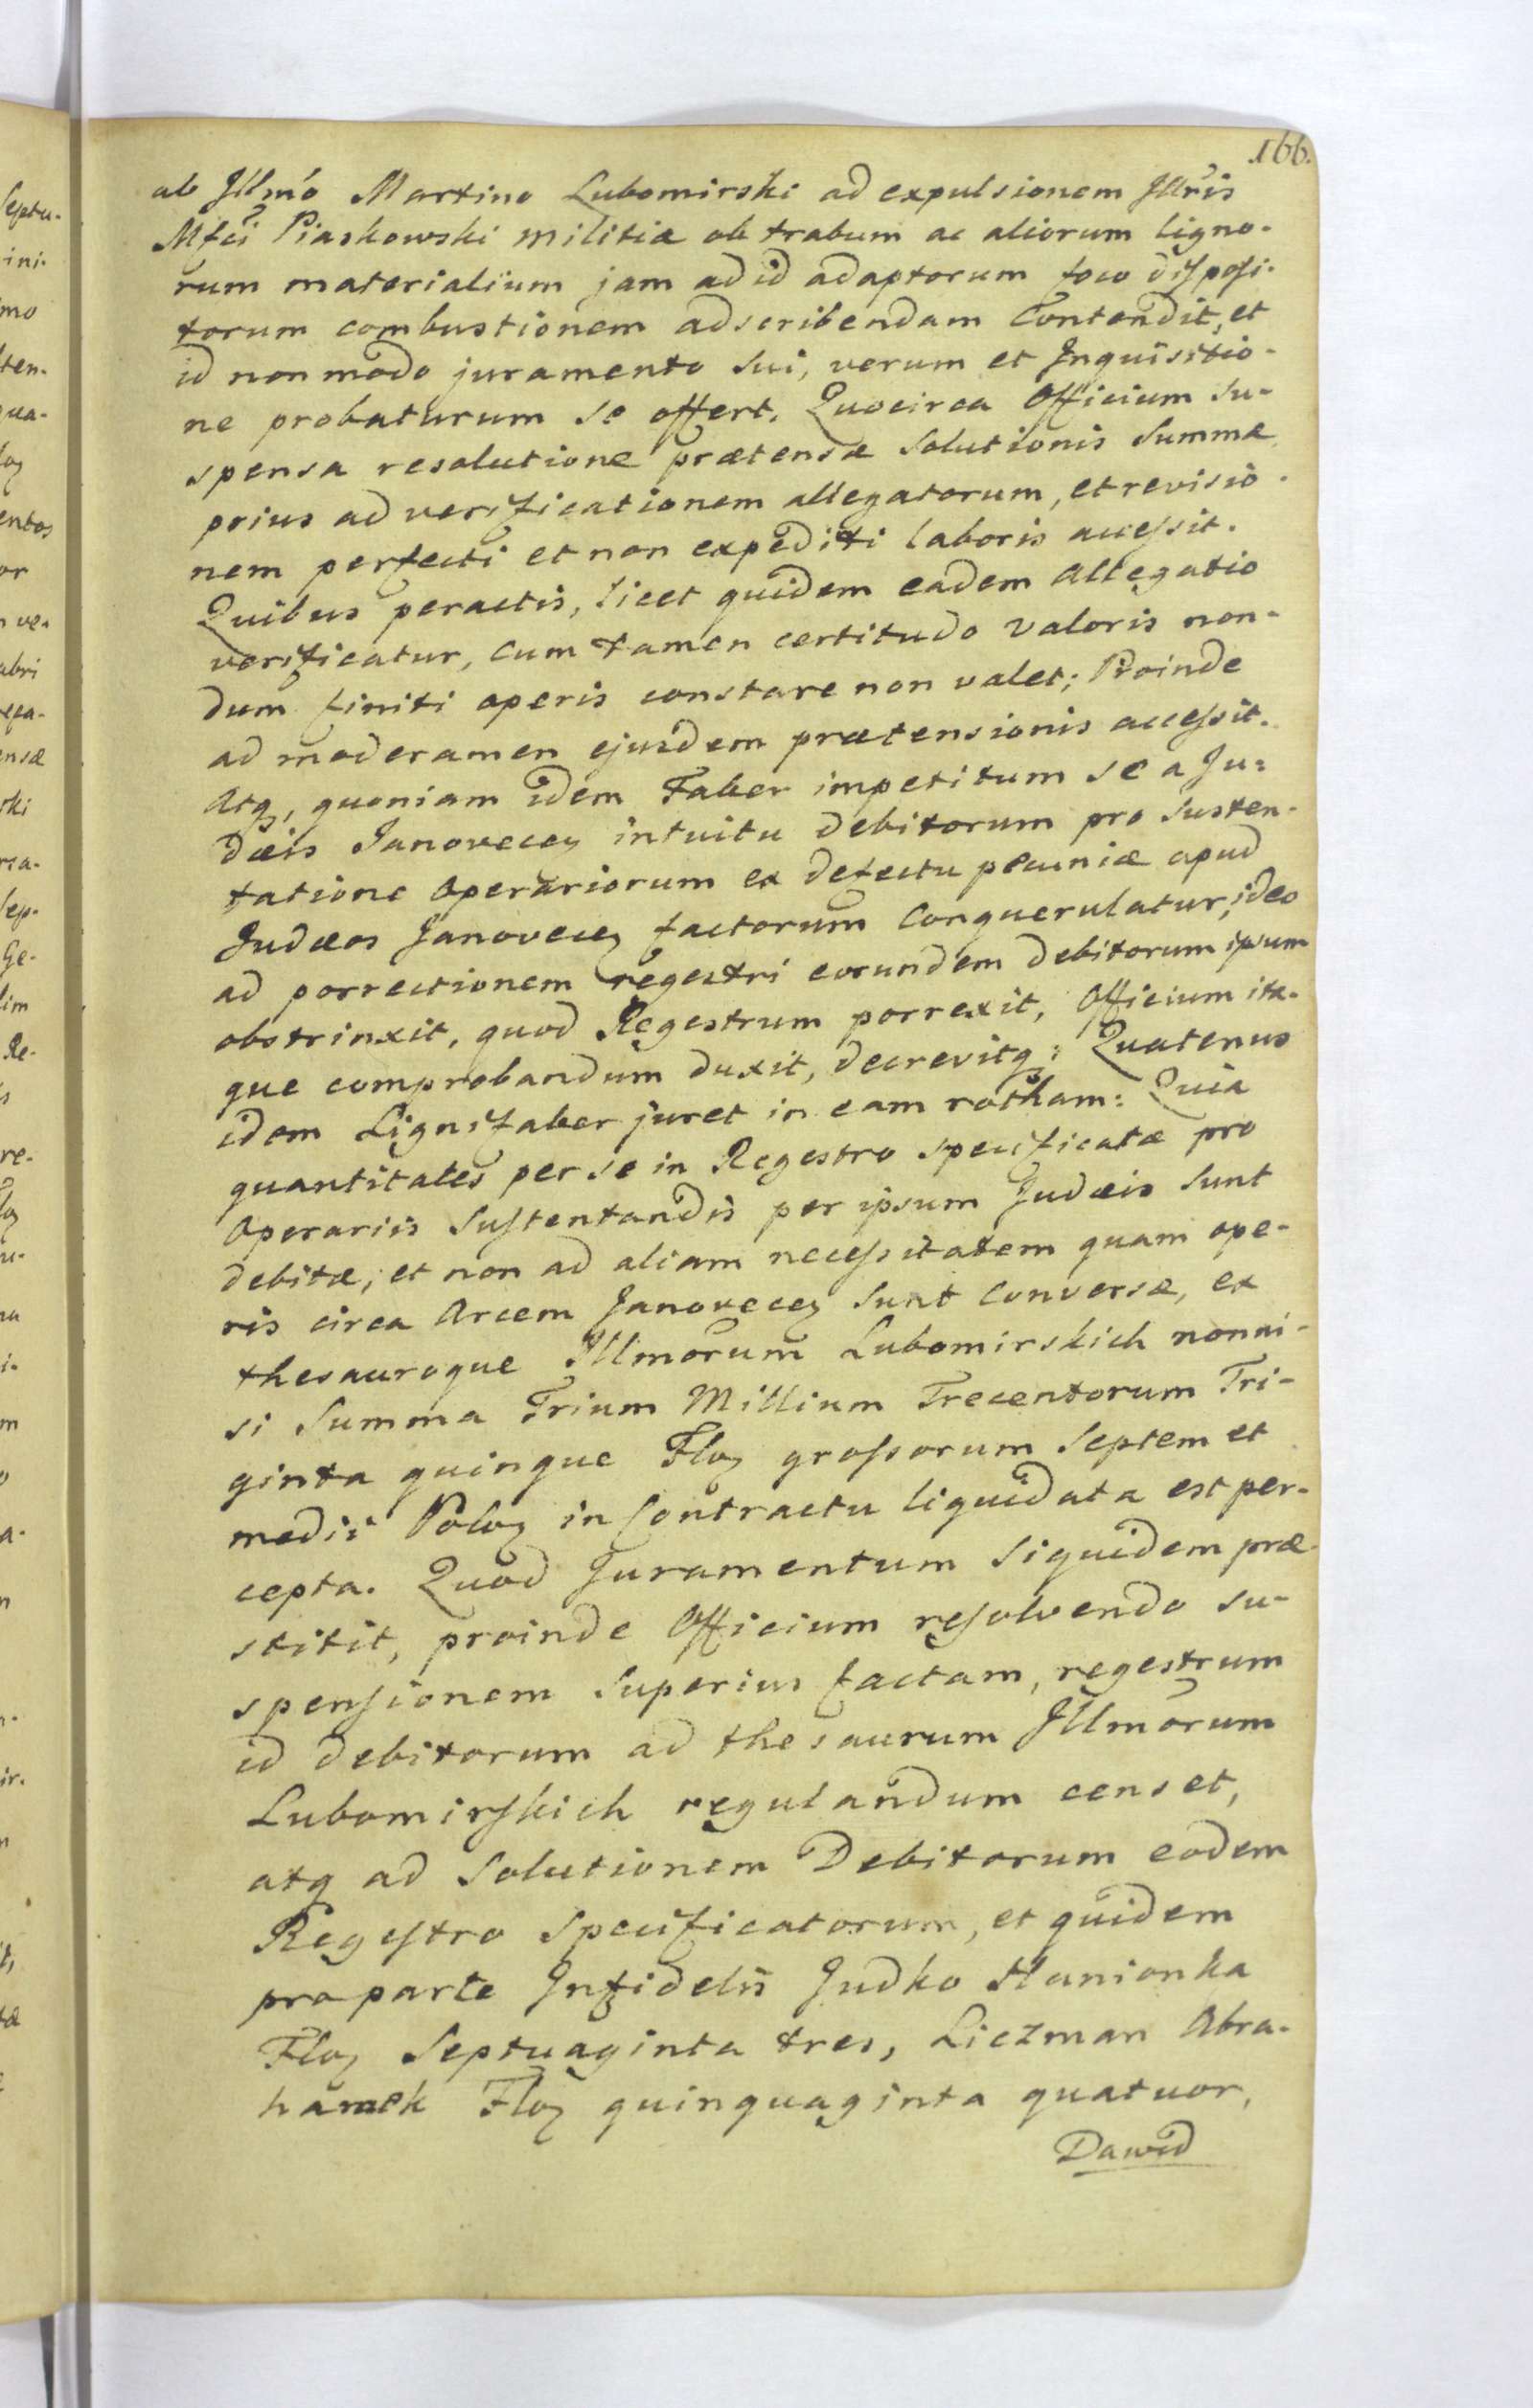 166.
ab Jllmo Martino Lubomirski ad expulsionem Jllris
Mfci Piaskowski militiæ ob trabum ac aliorum ligno-
rum materialium jam ad id adaptorum foco disposi-
torum combustionem adscribendam Contendit, et
id non modo juramento sui, verum et Jnquisitio-
ne probaturum se offert. Quocirca Officium su-
spensa resolutione prætensæ Solutionis Summæ
prius ad verificationem allegatorum, et revisio-
nem perfecti et non expediti laboris accessit.
Quibus peractis, licet quidem eadem Allegatio
verificatur, cum tamen certitudo valoris non-
dum finiti operis constare non valet; Proinde
ad moderamen ejusdem prætensionis accessit.
Atq, quoniam idem Faber impetitum se a Ju-
dæis Janovecen intuitu debitorum pro susten-
tatione Operariorum ex defectu pecuniæ apud
Judæos Janovecen factorum Conquerulatur, ideo
ad porrectionem regestri eorundem debitorum ipsum
obstrinxit, quod Regestrum porrexit, Officium ita-
que comprobandum duxit, decrevitq; Quatenus
idem Lignifaber juret in eam rotham: Quia
quantitates per se in Regestro specificatæ pro
Operariis Sustentandis per ipsum Judæis Sunt
debitæ, et non ad aliam necessitatem quam ope-
ris circa Arcem Janovecen Sunt Conversæ, ex
thesauroque Jllmorum Lubomirskich nonni-
si Summa Trium Millium Trecentorum Tri-
ginta quinque Flor grossorum Septem et
medii Polon in Contractu liquidata est per-
cepta. Quod Juramentum Siquidem præ-
stitit, proinde Officium resolvendo su-
spensionem Superius factam, regestrum
id debitorum ad thesaurum Jllmorum
Lubomirskich regulandum censet,
atq ad Solutionem Debitorum eodem
Regestro Specificatorum, et quidem
pro parte Jnfidelis Judko Hanionka
Flor Septuaginta tres, Liczman Abra-
hamek Flor quinquaginta quatuor,
Dawid